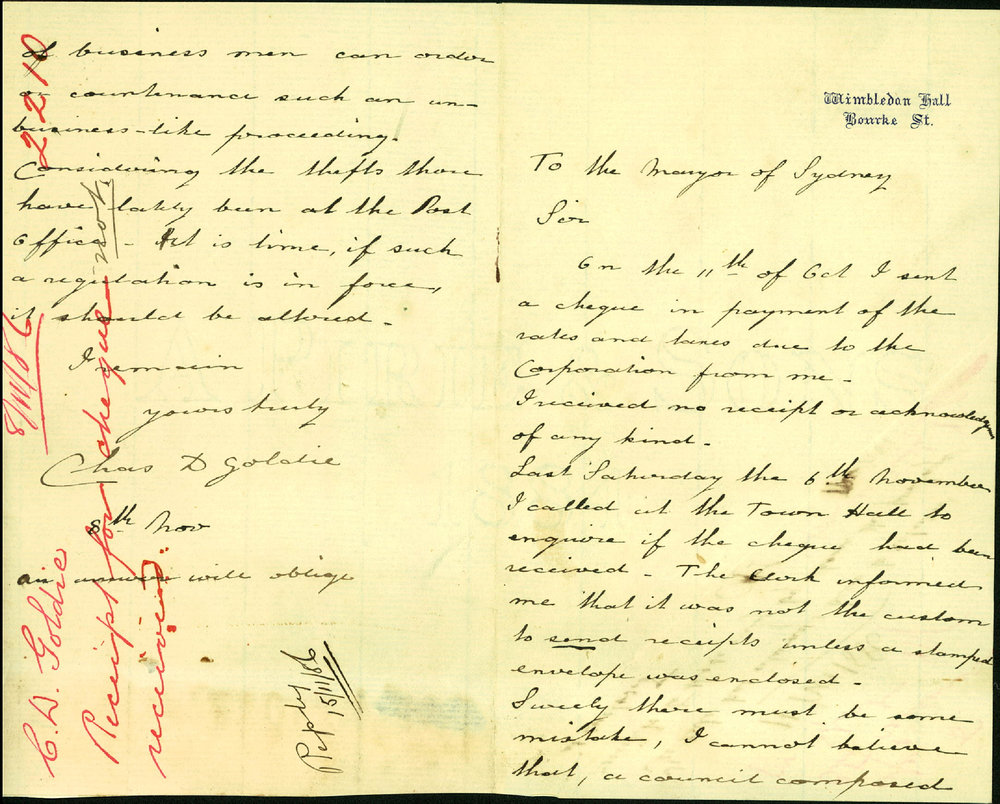 Wimbledon Hall
Bourke St.
To the Mayor of Sydney
Sir
On the 11th of Oct I sent
a cheque in payment of the
rates and taxes due to the
Corporation from me -
I received no receipt or acknowledgm
of any kind -
Last Saturday the 6th November
I called at the Town Hall to
enquire if the cheque had been
received - The Clerk informed
me that it was not the custom
to send receipts unless a stamped
envelope was enclosed -
Surely there must be some
mistake, I cannot believe
that, a council composed
of business men can order
or countenance such an un-
business-like proceeding.
Considering the thefts there
have lately been at the Post
Office - it is time, if such
a regulation is in force,
it should be altered -
I remain
yours truly
Chas D Goldie
8th Nov
an answer will oblige
2210
8/11/86
C. D. Goldie
Receipt for cheque not
received.
15/11/86